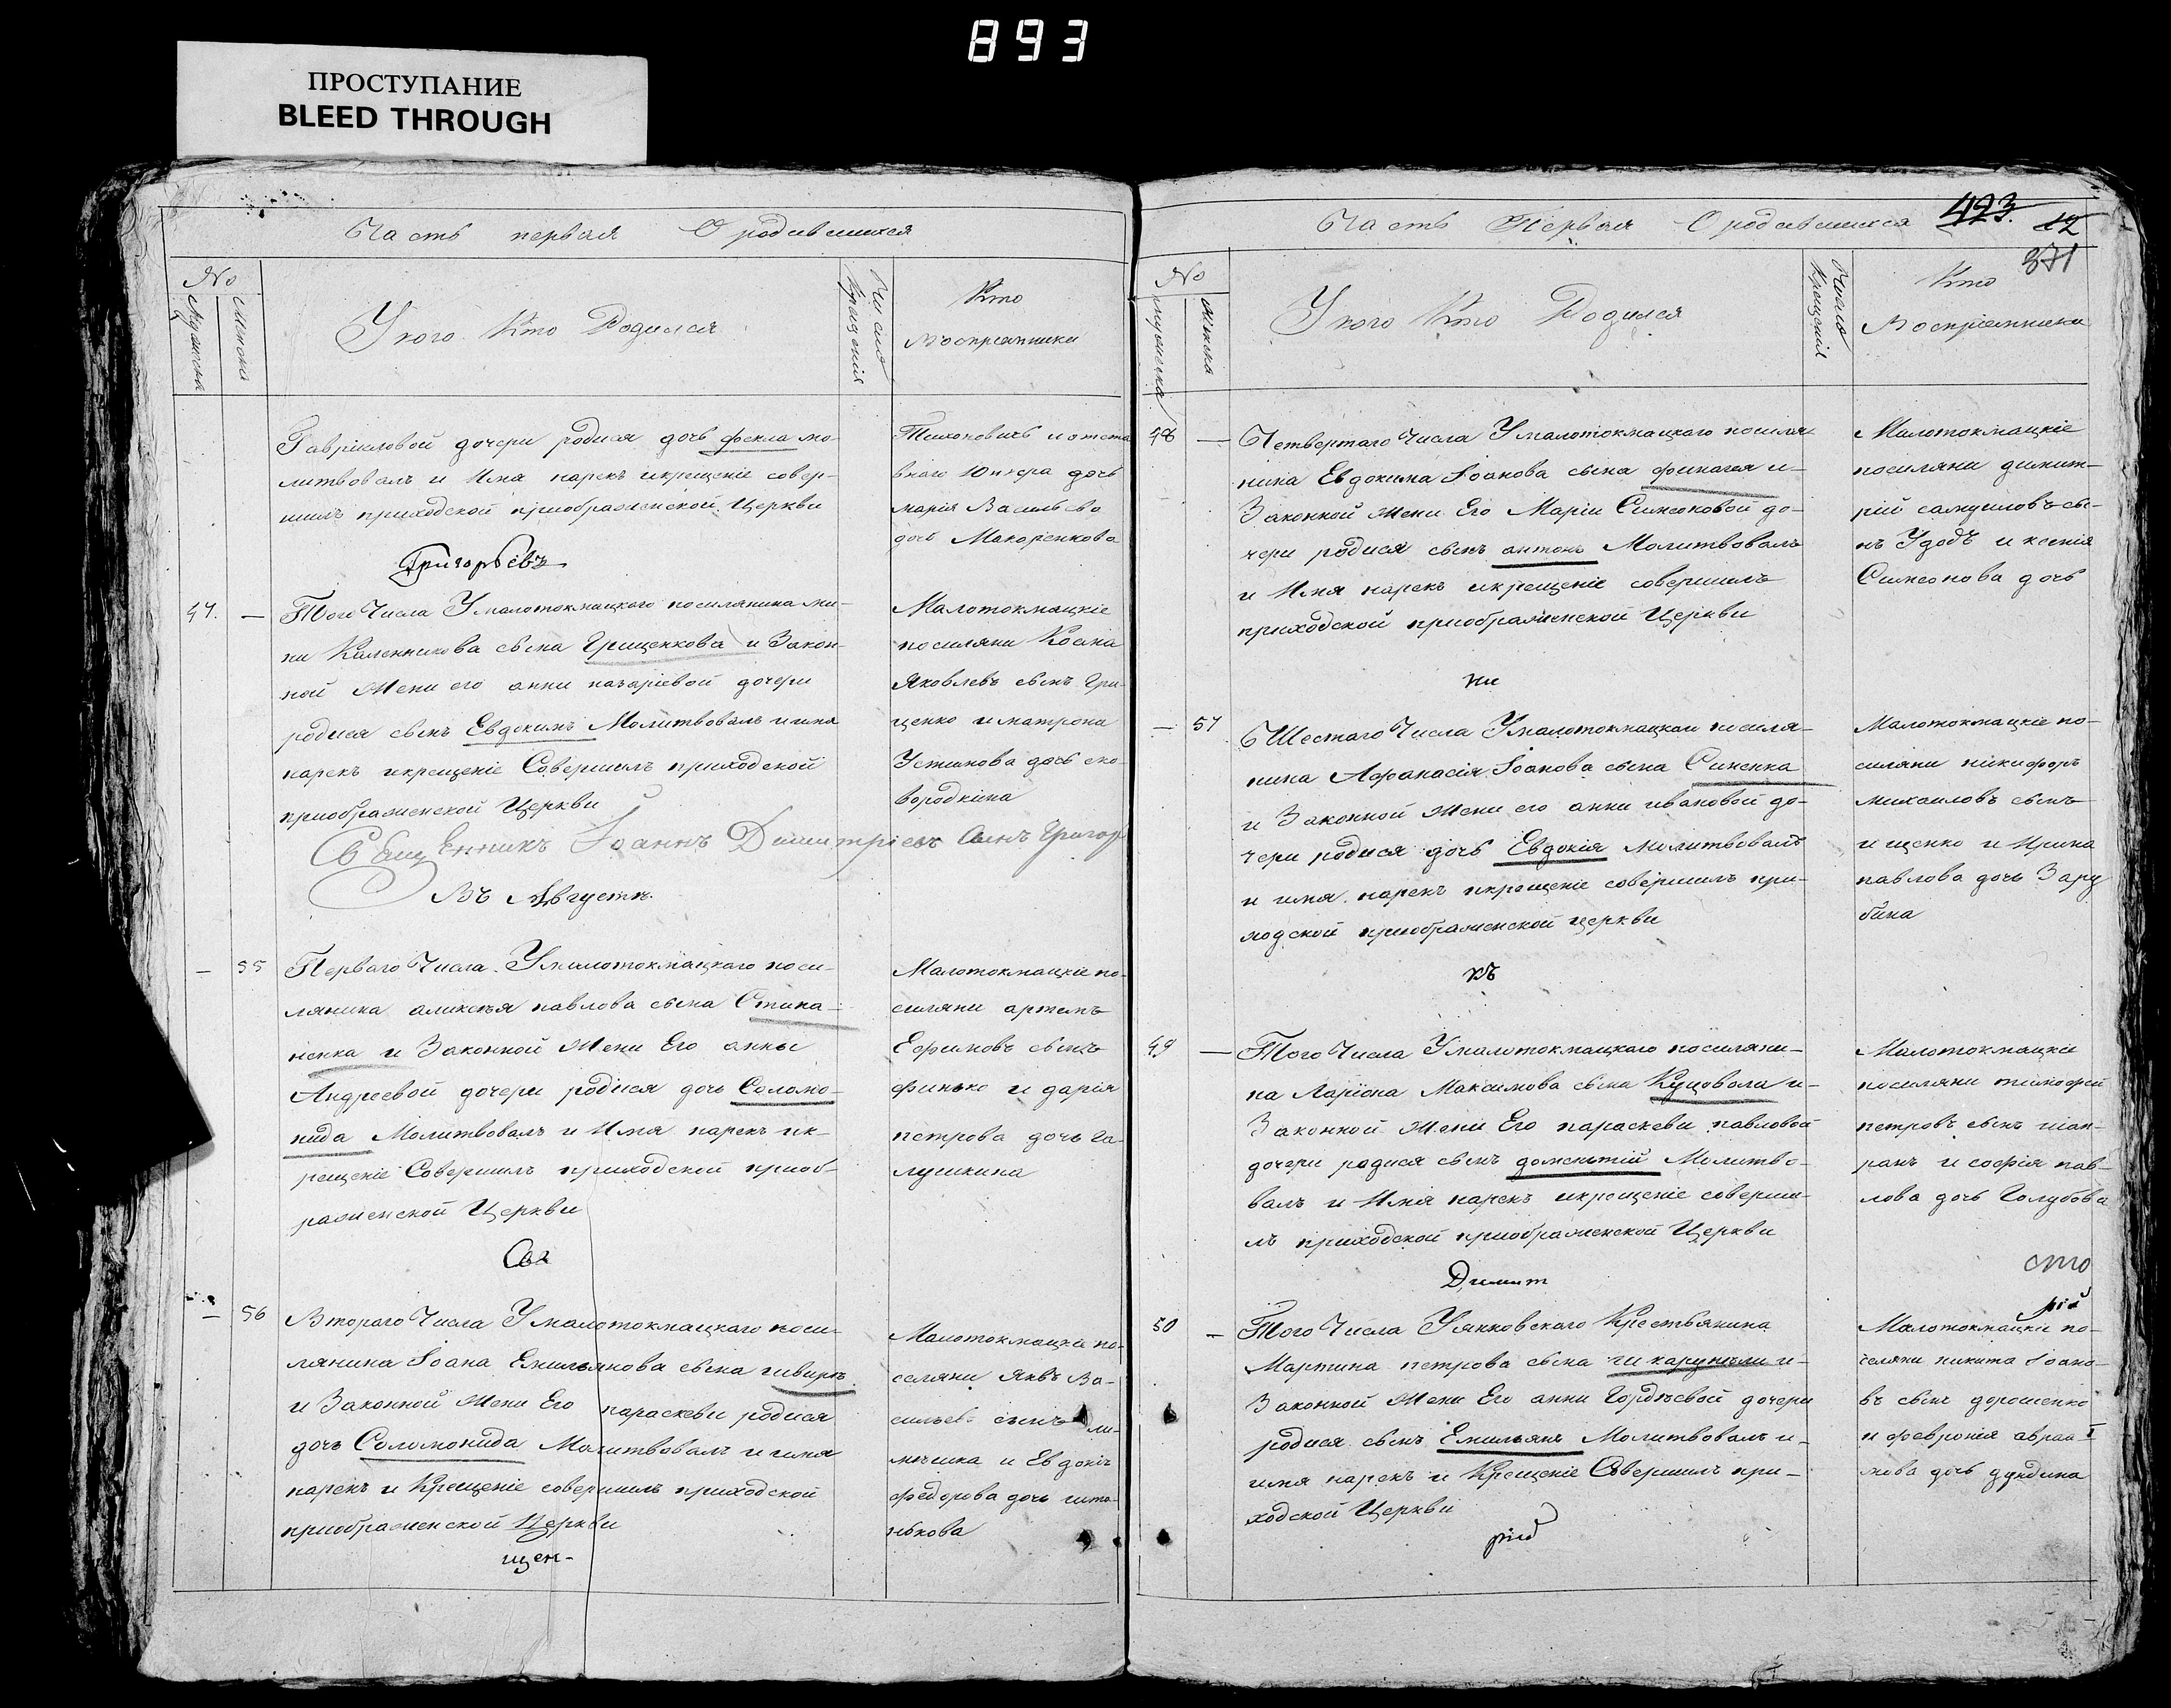 893
ПРОСТУПАНИЕ
BLEED THROUGH
Часть первая О родившихся
№
Мужеска
Женска
У кого Кто Родился
Число Крещенія
Кто
Воспріемники
Гавріиловой дочери родися дочь фекла мо-
литвовалъ и Имя нарекъ икрещеніе совер-
шилъ приходской приображенской Церкви
Григорьевъ
Тихоновичъ и отста
внаго Юнкера дочь
марія Василѣво
дочь Макаренкова
47. —
Того Числа У малотокмацкаго посилянина ми-
ни Каленникова сына Грищенкова и Закон-
ной Жени его анни назаріевой дочери
родися сынъ Евдокимъ Молитвовалъ и имя
нарекъ икрещеніе Совершилъ приходской
приображенской Церкви
Малотокмацкіе
посиляни Косма
Яковлевъ сынъ Гри-
ценко и матрона
Устинова дочь ско-
вородкіна
Священникъ Іоаннъ Димитріевъ Сынъ Григор
Въ Августѣ.
— 55
Перваго Числа У малотокмацкаго поси-
лянина аликсѣя павлова сына Степа-
ненка и Законной Жени Его анны
Андреевой дочери родися дочь Соломо-
нида Молитвовалъ и Имя нарекъ ик-
рещеніе Совершилъ приходской приоб-
раженской Церкви
Свя
Малотокмацкіе по-
силяни артемъ
Ефимовъ сынъ
финько и дарія
петрова дочь га-
лушкина
— 56
Втораго Числа У малотокмацкаго поси-
лянина Іоана Емильянова сына
и Законной Жени Его параскеви родися
дочь Соломонида Молитвовалъ и имя
нарекъ и Крещеніе совершилъ приходской
приображенской Церкви
щен-
Малотокмацкіе по-
селяни Яквъ Ва-
сильевъ сынъ
и Евдокія
Федорова дочь
Часть Первая О родившихся
493.
12
871
№
мужеска
женска
У кого Кто Родился
Число Крещенія
Кто
Воспріемники
48 —
Четвертаго Числа У малотокмацкаго посиля-
нина Евдокима Іоанова сына финагея и-
Законной Жени Его Маріи Симеоновой до-
чери родися сынъ антонъ Молитвовалъ
и Имя нарекъ икрещеніе совершилъ
приходской приображенской Церкви
ни
Малотокмацкіе
посиляни димит-
рій самуиловъ сы-
нъ Удодъ и ксенія
Симеонова дочь
— 57
Шестаго Числа У малотокмацкаго посиля-
нина Афанасія Іоанова сына Синенка
и Законной Жени его анни ивановой до-
чери родися дочь Евдокія молитвовалъ
и имя нарекъ икрещеніе совершилъ при-
ходской приображенской церкви
къ
Малотокмацкіе по-
силяни никифоръ
михаиловъ сынъ
ищенко и Ирина
павлова дочь Зару
бина
49 —
Того Числа У малотокмацкаго посиляни-
на Ларіона Максимова сына Куцовола и-
Законной Жени Его параскеви павловой
дочери родися сынъ доментій Молитво-
валъ и Имя нарекъ икрещеніе соверши-
лъ приходской приображенской Церкви
Димит
Малотокмацкіе
посиляни тимофей
петровъ сынъ шап-
ранъ и софія пав-
лова дочь Голубова
сто
рій
50 —
Того Числа У янковскаго Крестьянина
Мартина петрова сына и-
Законной Жени Его анни Гордѣевой дочери
родися сынъ Емильянъ Молитвовалъ и-
имя нарекъ и Крещеніе Совершилъ при-
ходской Церкви
рій
Малотокмацкіе по-
селяни никита Іоано-
въ сынъ дорошенко
и февронія авраа-
мова дочь дундина